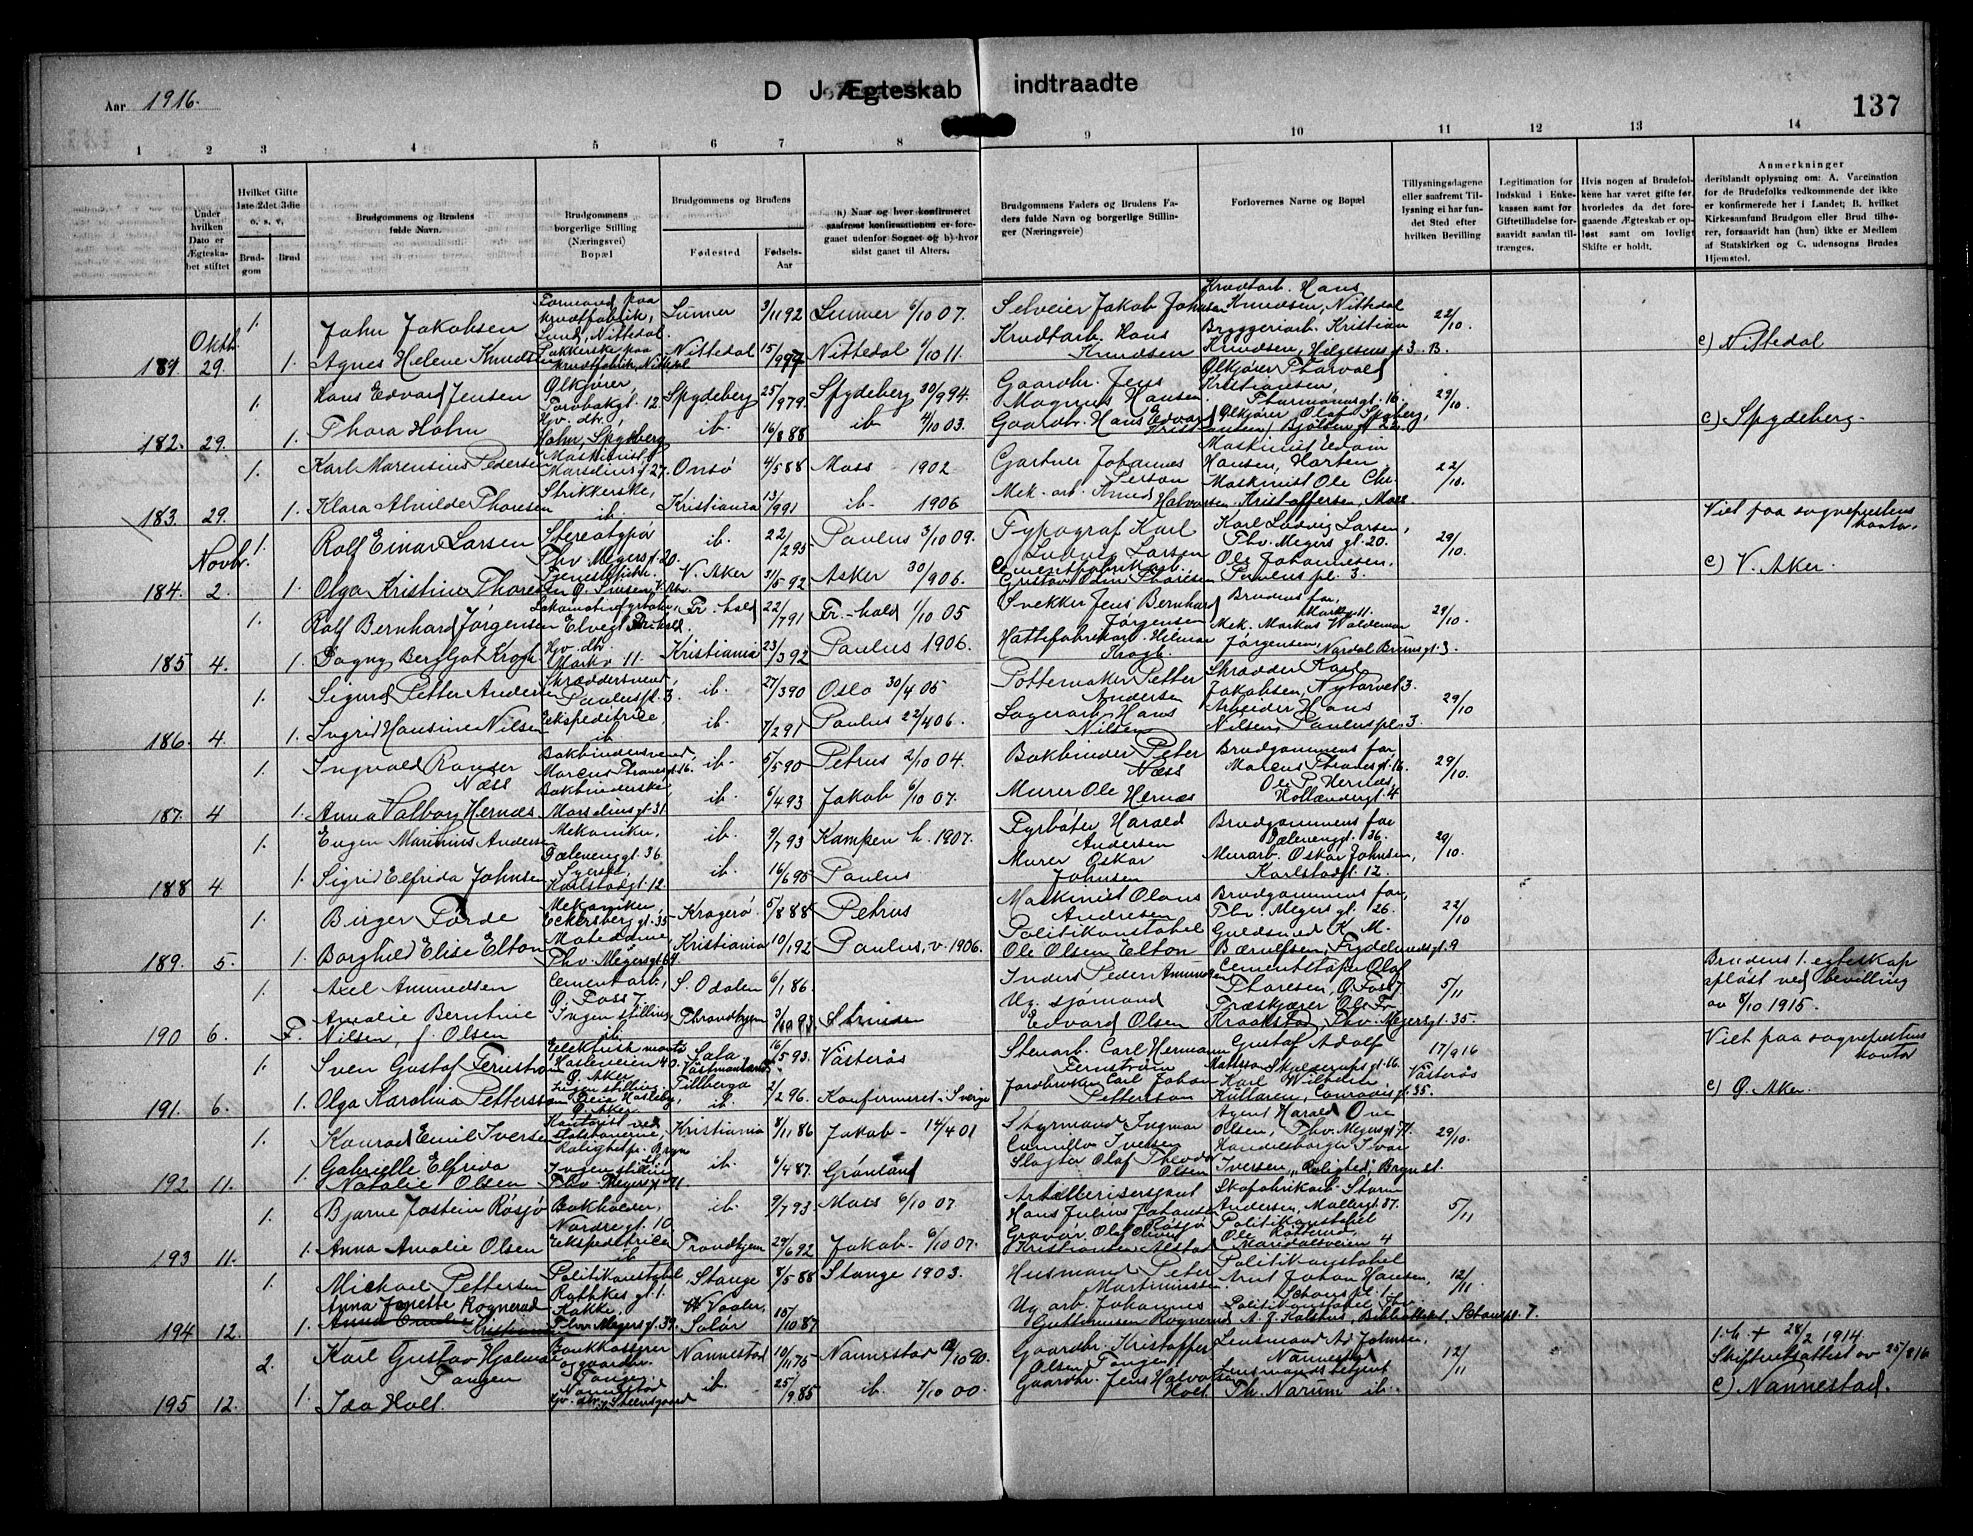 Aar 1916.
D J Ægteskab indtraadte
137
1 2 3 4 5 6 7 8 9 10 11 12 13 14
Under hvilken Dato er Ægteskabet stiftet
Hvilket Gifte 1ste 2det 3die o. s. v.
Brudgom
Brud
Brudgommens og Brudens fulde Navn.
Brudgommens borgerlige Stilling (Næringsvei) Bopæl
Brudgommens og Brudens
Fødested
Fødsels-Aar
a) Naar og hvor konfirmeret saafremt konfirmationen er foregaaet udenfor Sognet og b) hvor sidst gaaet til Alters.
Brudgommens Faders og Brudens Faders fulde Navn og borgerlige Stillinger (Næringsveie)
Forlovernes Navne og Bopæl
Tillysningsdagene eller saafremt Tillysning ei har fundet Sted efter hvilken Bevilling
Legitimation for Indskud i Enkekassen samt for Giftetilladelse forsaavidt saadan tiltrænges.
Hvis nogen af Brudefolkene har været gifte før, hvorledes da det foregaaende Ægteskab er opløst samt om lovligt Skifte er holdt.
Anmerkninger deriblandt oplysning om: A. Vaccination for de Brudefolks vedkommende der ikke er konfirmerede her i Landet; B. hvilket Kirkesamfund Brudgom eller Brud tilhører, forsaavidt han (hun) ikke er Medlem af Statskirken og C. udensogns Brudes Hjemsted.
1. Jahn Jakobsen Formand paa krudtfabrik, Lund, Nittedal Lunner 3/11 92 Lunner 6/10 07. Selveier Jakob Johnsen Krudtarb. Hans Knudsen, Nittedal 22/10.
181 Oktb. 29. 1. Agnes Helene Knudsen Nittedal 15/9 Nittedal 1/10 11. Krudtarb. Hans Knudsen Bryggeriarb. Kristian Knudsen, 3. B. c) Nittedal
1. Hans Edvard Jensen Ølkjører, Torvbakgt. 12. Spydeberg 25/9 79. Spydeberg 30/9 94. Gaardbr. Jens Magnus Hansen Ølkjører Thorvald Kristiansen, Thurmannsgt. 16. 29/10.
182. 29. 1. Thora Holm Gv. dtr., Holm, Spydeberg ib. 16/8 88 ib. 4/10 03. Gaardbr. Hans Edvard Kristiansen Ølkjører, Olaf Spyberg, 22. c) Spydeberg.
1. Karl Marensius Pedersen Maskinist, Marselius g. 27. Onsø 4/5 88 Moss 1902 Gartner Johannes Person Maskinist Edvin Hansen, Horten, 22/10.
183. 29. 1. Klara Alvilde Thoresen Strikkerske, ib. Kristiania 13/9 91 ib. 1906 Mek. arb. Knud Halvorsen Maskinist Ole Chr. Kristoffersen, Moss. Viet paa sogneprestens kontor.
1. Rolf Einar Larsen Stereotypør Thv. Meyers gt. 20. ib. 22/2 95 Paulus 3/10 09. Typograf Karl Ludvig Larsen Karl Ludvig Larsen, Thv. Meyers gt. 20. 29/10.
184. Novbr. 2. 1. Olga Kristine Thoresen V. Aker 31/5 92 Asker 30/9 06. Cementfabrikarb. Gustav Odin Thoresen Ole Johannesen, Paulus pl. 3. c) V. Aker.
1. Rolf Bernhard Jørgensen Lokomotivfyrbøter, Fr.-hald 22/7 91 Fr.-hald 1/10 05 Snekker Jens Bernhard Jørgensen Brudens far, Markv. 11. 29/10.
185 4. 1. Dagny Bergljot Krogh Gv. dtr. Markv. 11. Kristiania 23/3 92 Paulus 1906. Hattefabrikarb. Hilmar Krogh. Mek. Markus Waldemar Jørgensen, Nordal Brunsgt. 3.
1. Sigurd Petter Andersen Skræddersvend, Paulus pl. 3. ib. 27/3 90 Oslo 30/4 05 Pottemaker Petter Andersen Skrædder Karl Jakobsen, Nytorvet 3. 29/10
186. 4. 1. Ingrid Hansine Nilsen Ekspeditrice, ib. ib. 7/2 91 Paulus 22/4 06. Lagerarb. Hans Nilsen Arbeider Hans Nilsen, Paulus pl. 3.
1. Ingvald Næss Bokbindersvend, Marcus Thranesgt. 16. ib. 5/5 90 Petrus 2/10 04. Bokbinder Peter Næss Brudgommens far, Marcus Thranesgt. 16. 29/10.
187. 4 1. Anna Valborg Hernæs Bokbinderske, Marselius gt. 31 ib. 6/4 93 Jakob 6/10 07. Murer Ole Hernæs Ole P. Hernæs, Hollændergt. 4
1. Eugen Marthinus Andersen Mekaniker, Dælenenggt. 36 ib. 9/7 93 Kampen h. 1907. Fyrbøter Harald Andersen Brudgommens far Dælenenggt. 36. 29/10.
188 4 1. Sigrid Elfrida Johnsen Syerske, Karlstadgt. 12. ib. 16/6 95 Paulus Murer Oskar Johnsen Murarb. Oskar Johnsen, Karlstadgt. 12.
1. Birger Førde Mekaniker, Eckersberg gt. 35 Kragerø 5/8 88 Petrus Maskinist Olaus Andresen Brudgommens far, Thv. Meyers gt. 26. 22/10
189. 5. 1. Borghild Elise Elton Thv. Meyersgt. 64 Kristiania 10/1 92 Paulus, v. 1906. Politikonstabel Ole Olsen Elton Guldsmed K. M. Frydenlundsgt. 9
1. Axel Amundsen Cementarb., Ø. Foss 7 S. Odalen 6/1 86. Inders Peder Amundsen Cementstøper Olaf Thoresen, Ø. Foss 7 5/11 Brudens 1. egteskap opløst ved bevilling av 8/10 1915.
190 6. F. Amalie Berntine Nilsen, f. Olsen Ingen stilling, ib. Throndhjem 3/ 93. Strinden Ug. sjømand Edvard Olsen Træskjærer Ole Fr. Kraakstad, Thv. Meyersgt. 35.
1. Sven Gustaf Fernström Elektrisk mont. Hasleveien 40. Ø. Aker Sala Västmanland 16/5 93. Västerås Stenarb. Carl Hermann Fernström Gustaf Adolf Mattsson 16. 17/9 16 Västerås Viet paa sogneprestens kontor
191. 6. 1. Olga Karolina Pettersson Ingen stilling, Ø. Aker Tillberga ib. 2/2 96. Konfirmeret i Sverige Jordbruker Carl Johan Petterson Karl Wilhelm Kullgren, 35. c) Ø. Aker.
1. Konrad Emil Iversen Kontorist ved statsbanerne, Rolighet pr. Bryn Kristiania 8/11 86 Jakob - 14/4 01 Styrmand Ingmar Camillo Iversen Agent Harald Olsen, Thv. Meyersgt. 71. 29/10.
192 11. 1. Gabrielle Elfrida Natalie Olsen Ingen stilling Thv. Meyersgt. 71. ib. 6/4 87. Grønland Slagter Olaf Theodor Olsen Handelsborger Ivar Iversen, „Rolighed", Bryn st.
1. Bjarne Jostein Røsjø Bokholder, Nordregt. 10 ib. 9/7 93 Moss 6/10 07 Artillerisersjant Hans Julius Johansen Røsjø Skofabrikarb. Sturm Andersen, Møllergt. 87. 5/11
193 11. 1. Anna Amalie Olsen Ekspeditrice ib Trondhjem 29/6 92 Jakob - 6/10 07. Gravør, Olaf Oliver Kristiansen Alstad Politikonstabel Ole Maridalsveien 4
1. Michael Pettersen Politikonstabel, Rathkes gt. 1. Stange 8/5 88 Stange 1903. Husmand Peter Martinussen Politikonstabel Arnt Johan Hansen, Schouspl. 1. 12/11.
194 12. 1. Anna Jonette Rognerud Kokke, Thv. Meyersgt. 37. Vaaler, Solør 15/10 87 Ug. arb. Johannes Guttormsen Rognerud Politikonstabel Schouspl. 7.
2. Karl Gustav Hjalmar Tangen Bankkasserer og gaardbr. Tangen, Nannestad Nannestad 10/11 75 Nannestad 12/10 90. Gaardbr. Kristoffer Olsen Tangen Lensmand Ad. Johnsen, Nannestad 12/11 1. h. + 28/2 1914. Skifteretsattest av 25/8 16
195 12. 1. Ida Holt. Gv. dtr. Steensgaard ib. 25/9 85 ib. 7/10 00. Gaardbr. Jens Halvorsen Holt Lensmandsbetjent Th. Narum ib. c) Nannestad.